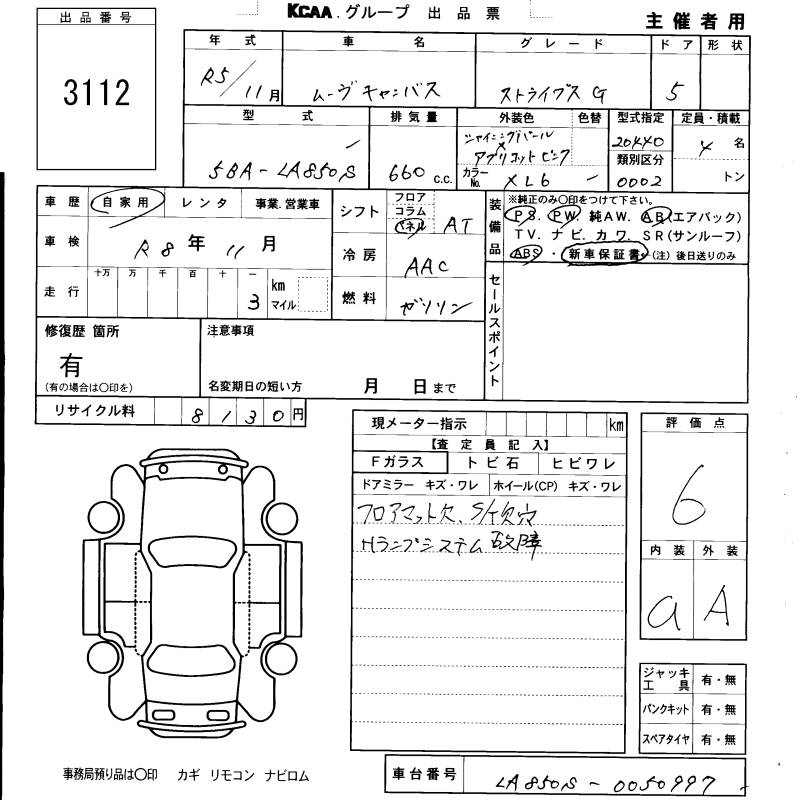 KCAA.グループ 出品票
主催者用
出品番号
3112
年式 車名 グレード ドア 形状
R5/11月 ムーヴキャンバス ストライプスG 5
型式 排気量 外装色 色替 型式指定 定員・積載
5BA-LA850S 660 c.c. シャイニングパール×アプリコットピンク 20440 4名
カラーNo. XL6 - 類別区分 0002 トン
車歴 自家用 レンタ 事業.営業車
車検 R8年11月
走行 十万 万 千 百 十 一
3 km マイル
シフト フロア コラム パネル AT
冷房 AAC
燃料 ガソリン
装備品 ※純正のみ〇印をつけて下さい。
PS. PW. 純AW. AB(エアバック)
TV. ナビ. カワ. SR(サンルーフ)
ABS・新車保証書(注)後日送りのみ
セールスポイント
修復歴 箇所
有
(有の場合は〇印を)
注意事項
名変期日の短い方 月 日まで
リサイクル料 8130円
現メーター指示 km
【査定員記入】
Fガラス トビ石 ヒビワレ
ドアミラー キズ・ワレ ホイール(CP) キズ・ワレ
フロアマット欠、S/T欠穴
Hランプシステム故障
評価点
6
内装 外装
a A
ジャッキ工具 有・無
パンクキット 有・無
スペアタイヤ 有・無
事務局預り品は〇印 カギ リモコン ナビロム
車台番号 LA850S-0050997